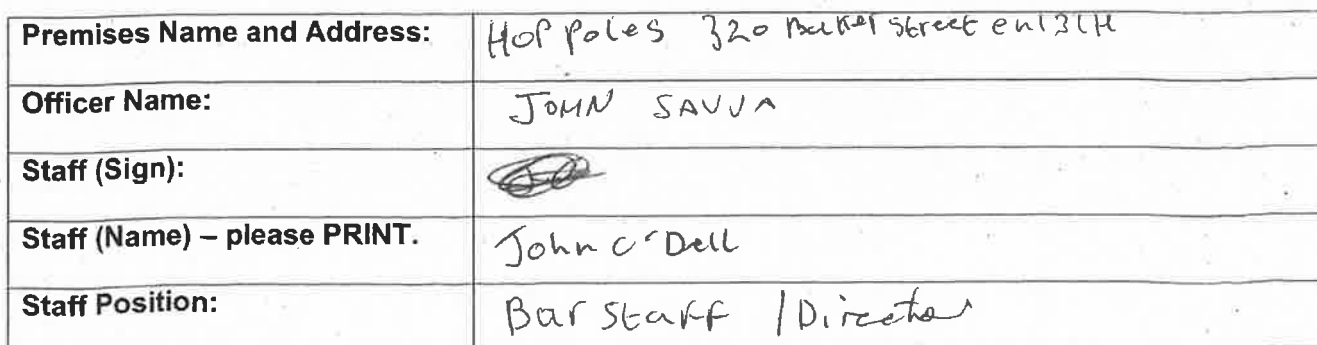 Premises Name and Address: Hop Poles 320 Baker Street en13LH
Officer Name: JOHN SAVVA
Staff (Sign):
Staff (Name) – please PRINT. John O'Dell
Staff Position: Bar Staff / Director